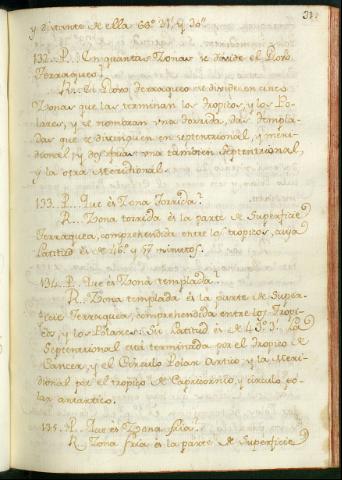 y distante de ella 66º 31' y 30''
132. P.. En quantas Zonas se divide el Globo
Terraqueo?
R.. El Globo terraqueo se divide en cinco
Zonas que las terminan los tropicos, y los Po-
lares, y se nombran una torrida, dos templa-
das que se distinguen en septentrional, y meri-
dional, y dos frias una tambien septentrional,
y la otra Meridional.
133. P.. Que és Zona Torrida?
R.. Zona torrida és la parte de Superficie
Terraquea, comprehendida entre los tropicos, cuya
Latitud és de 46º y 57 minutos.
134. P.. Que és Zona templada?
R.. Zona templada és la parte de Super-
ficie Terraquea, comprehendida entre los Tropi-
cos, y los Polares: Su Latitud és de 43º 3'. La
Septentrional está terminada por el tropico de
Cancer, y el Circulo Polar Artico, y la Meri-
dional por el tropico de Capricornio, y circulo po-
lar antartico.
135. P. Que és Zona fria?
R.. Zona fria és la parte de Superficie